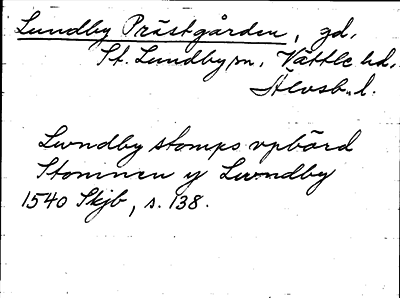 Lundby Prästgården, gd,
St. Lundby sn, Vättle hd,
Älvsb. l.
Lwndby stomps vpbörd
Stommen y Lwndby
1540 Skjb, s. 138.